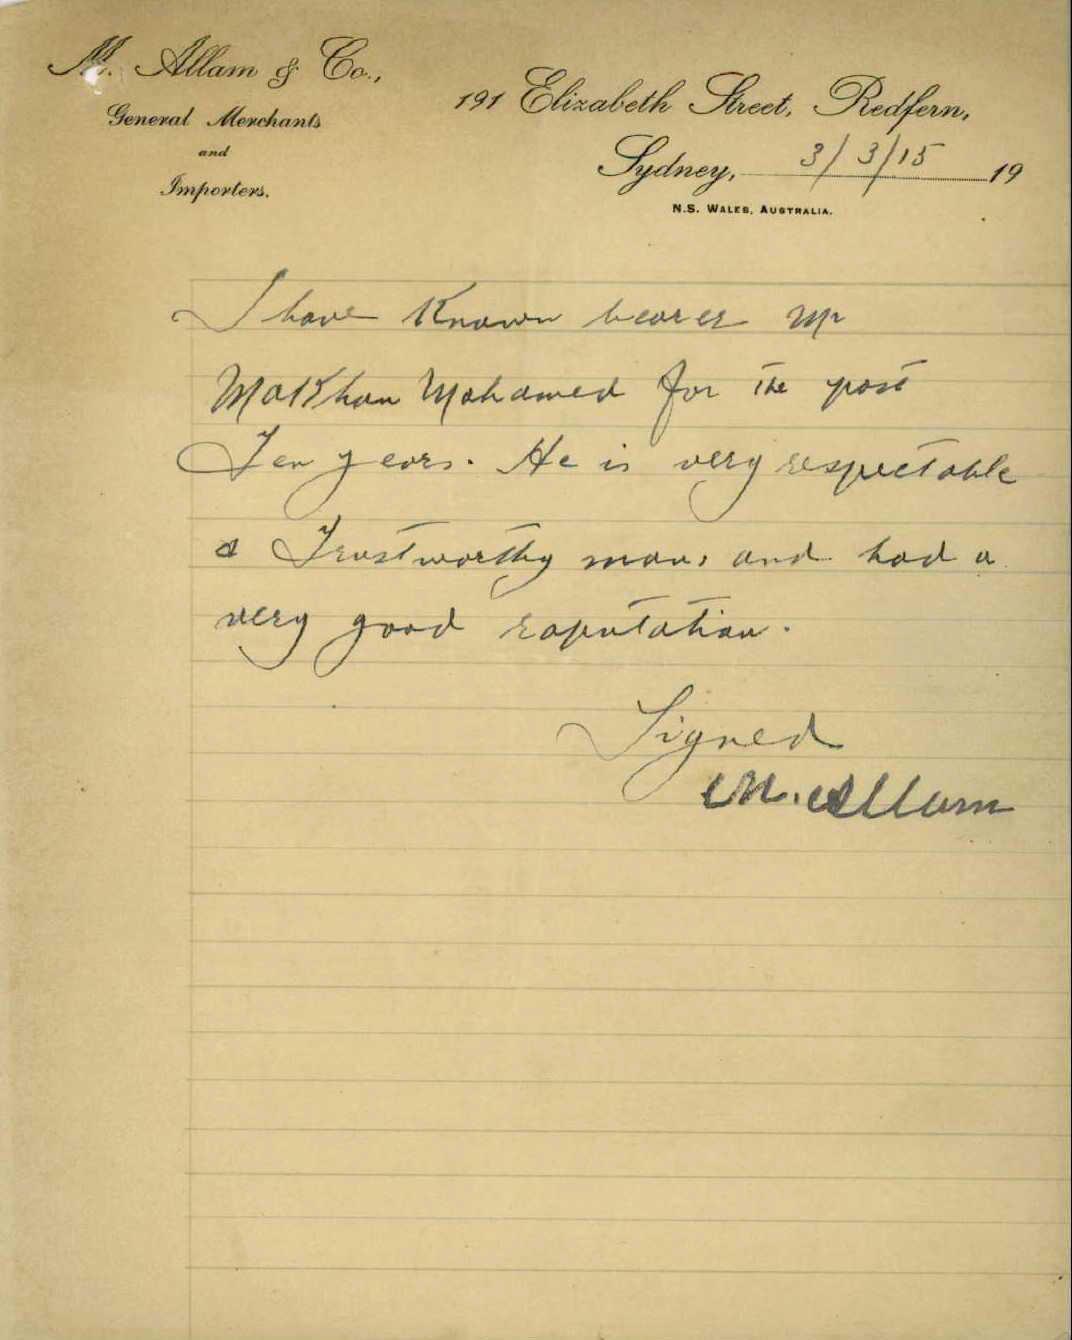 M. Allam & Co.,
General Merchants
and
Importers.
191 Elizabeth Street, Redfern,
Sydney, 3/3/15 19
N.S. WALES, AUSTRALIA.
I have Known bearer Mr
Malkhan Mohamed for the past
Ten years. He is very respectable
& Trustworthy man, and had a
very good raputation.
Signed
M. Allam